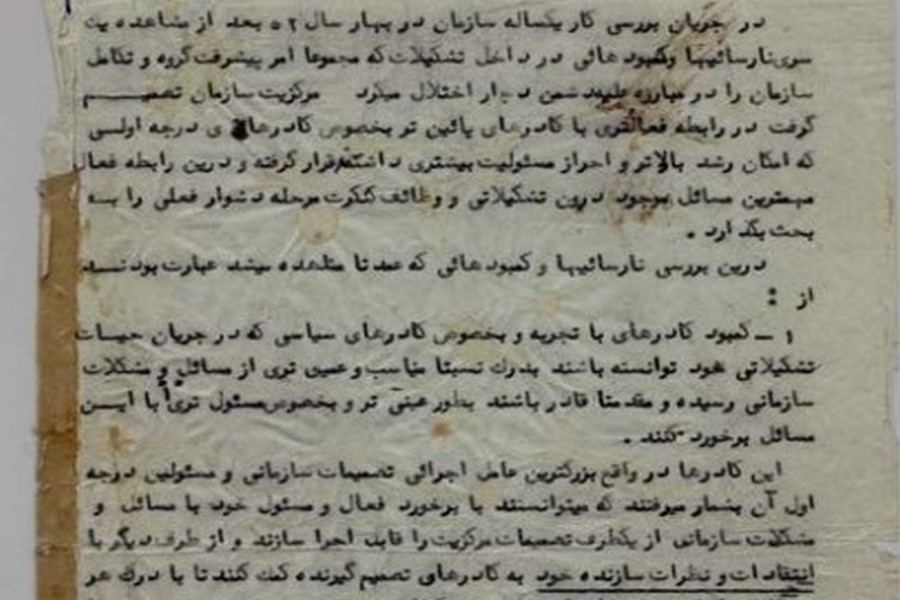 در جریان بررسی کار یکساله سازمان در بهار سال ۵۲ بعد از مشاهده یک
سری نارسائیها وکمبود هائی در داخل تشکیلات که مجموعا امر پیشرفت گروه و تکامل
سازمان را در مبارزه علیه دشمن دچار اختلال میکرد مرکزیت سازمان تصمیم
گرفت در رابطه فعالتری با کادرهای پائین تر بخصوص کادرهای درجه اولی
که امکان رشد بالاتر و احراز مسئولیت بیشتری داشتند قرار گرفته و درین رابطه فعال
مهمترین مسائل موجود درون تشکیلاتی و وظائف کنکرت مرحله دشوار فعلی را به
بحث بگذارد .
درین بررسی نارسائیها و کمبود هائی که عمدتا مشاهده میشد عبارت بودند
از :
۱ ــ کمبود کادرهای با تجربه و بخصوص کادرهای سیاسی که در جریان حیات
تشکیلاتی خود توانسته باشند بدرك نسبتا مناسب و عمیق تری از مسائل و مشکلات
سازمانی رسیده و مقدمتا قادر باشند بطور عینی تر و بخصوص مسئول تری با این
مسائل برخورد کنند .
این کادرها در واقع بزرگترین عامل اجرائی تصمیمات سازمانی و مسئولین درجه
اول آن بشمار میرفتند که میتوانستند با برخورد فعال و مسئول خود با مسائل و
مشکلات سازمانی از یکطرف تصمیمات مرکزیت را قابل اجرا سازند و از طرف دیگر با
انتقادات و نظرات سازنده خود به کادرهای تصمیم گیرنده کمك کنند تا با درك هر